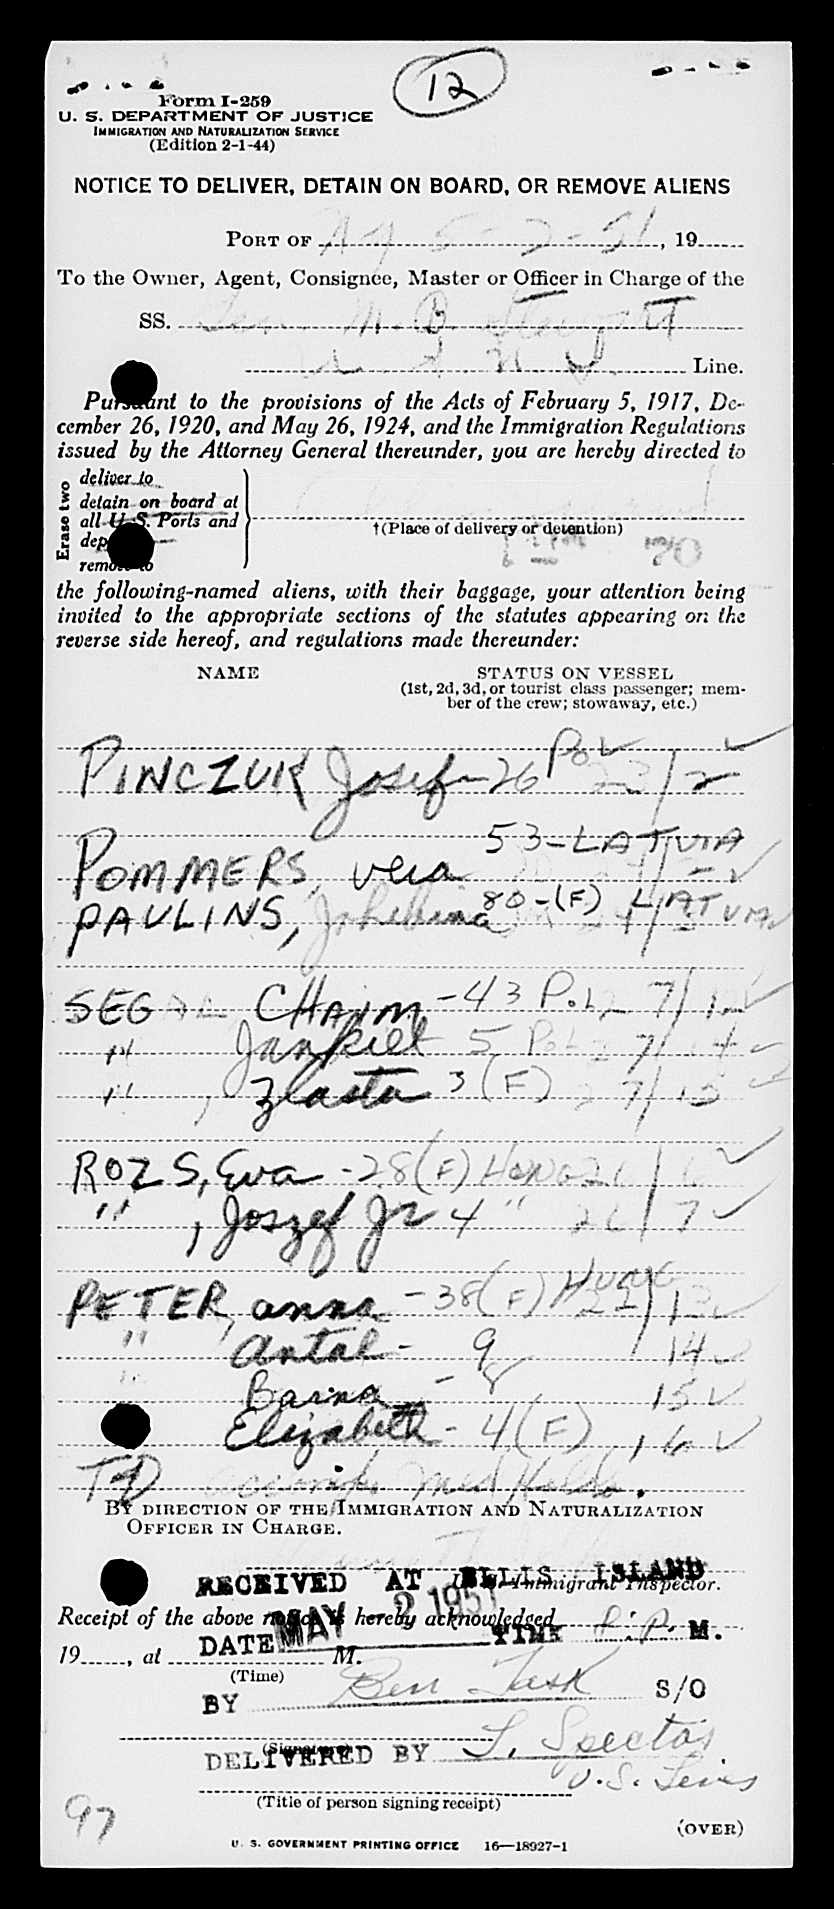 12
Form I-259
U. S. DEPARTMENT OF JUSTICE
IMMIGRATION AND NATURALIZATION SERVICE
(Edition 2-1-44)
NOTICE TO DELIVER, DETAIN ON BOARD, OR REMOVE ALIENS
PORT OF NY 5-2-51, 19
To the Owner, Agent, Consignee, Master or Officer in Charge of the
SS. Gen M. B. Stewart
Line.
Pursuant to the provisions of the Acts of February 5, 1917, De-
cember 26, 1920, and May 26, 1924, and the Immigration Regulations
issued by the Attorney General thereunder, you are hereby directed to
Erase two
deliver to
detain on board at
all U. S. Ports and
remove to
†(Place of delivery or detention)
20
the following-named aliens, with their baggage, your attention being
invited to the appropriate sections of the statutes appearing on the
reverse side hereof, and regulations made thereunder:
NAME STATUS ON VESSEL
(1st, 2d, 3d, or tourist class passenger; mem-
ber of the crew; stowaway, etc.)
PINCZUK Josef - 26 Pol 23/2 ✓
53 - LATVIA
POMMERS, vera ✓
PAULINS, 80 - (F) LATVIA
SEGAL CHAIM - 43 Pol 27/12 ✓
" Jankiel 5 Pol 27/14 ✓
" , Zlasta 3 (F) 27/13 ✓
ROZS, Eva - 28 (F) HUNG 26/6 ✓
" , Joszef Jr 4 " 26/7 ✓
PETER, anna - 38 (F) HUNG 22/13 ✓
" antal - 9 14 ✓
" Barna - 8 15 ✓
Elizabeth - 4 (F) 16 ✓
TD Med Holds.
BY DIRECTION OF THE IMMIGRATION AND NATURALIZATION
OFFICER IN CHARGE.
RECEIVED AT ELLIS ISLAND
Immigrant Inspector.
Receipt of the above notice is hereby acknowledged
MAY 2 1951
DATE TIME P. M.
19, at M.
(Time)
BY Ben Task S/O
(Signature)
DELIVERED BY L. Spector
U. S. Lines
(Title of person signing receipt)
97
(OVER)
U. S. GOVERNMENT PRINTING OFFICE 16—18927-1